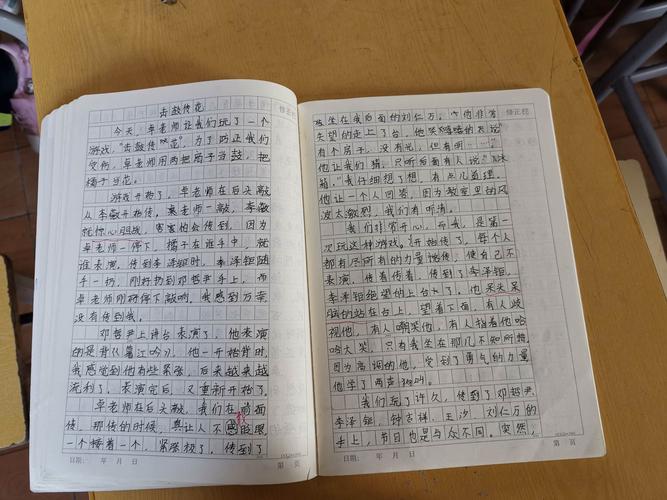 击鼓传花
今天，卓老师让我们玩了一个
游戏，"击鼓传花"，为了防止我们
受伤，卓老师用两把扇子当鼓，把
橘子当花。
游戏开始了，卓老师在后头敲
从李敬开始传，卓老师一敲，李敬
就惊心胆战，害害怕会传到，因为
卓老师一停下，橘子在谁手中，就
谁表演，传到李泽钜时，李泽钜随
手一扔，刚好扔到邓哲尹手上，而
卓老师刚好停下敲响，我感到万幸
没有传到我。
邓哲尹上讲台表演了，他表演
的是背《暮江吟》，他一开始背时，
我感觉到他有些紧张，后来越来越
流利了，表演完后，又重新开始了。
卓老师在后头敲，我们在前面
传，那传的时候，真让人不
一个接着一个，紧张极了，传到了
坐在我后面的刘仁万。
失望的走上了台，他笑嘻嘻的说
有个房子，没有光，但有明……"
他让我们猜，只听后面有人说"冰
箱，"我仔细想了想，有点儿道理，
他让一个人回答，因为教室里的风
波太激烈，我们没有听清。
我们非常开心，开我，是第一
次玩这种游戏。开始传了，每个人
都有尽所有的力量传，使自己不
表演，传着传着，传到了李泽钜，
李泽钜绝望的上台了，他呆头呆
脑的站在台上，望着下面，有人歧
视他，有人嘲笑他，有人指着他哈
哈大笑，只有我坐在那儿不知所措，
因为高调的他，受到了勇气的力量
他学了两声狗叫。
我们玩了许久，传到了邓哲尹，
李泽钜，钟吉祥，王沙，刘仁万的
手上，节目也是与众不同。突然，
日期： 年 月 日
第 页
日期： 年 月 日
第 页